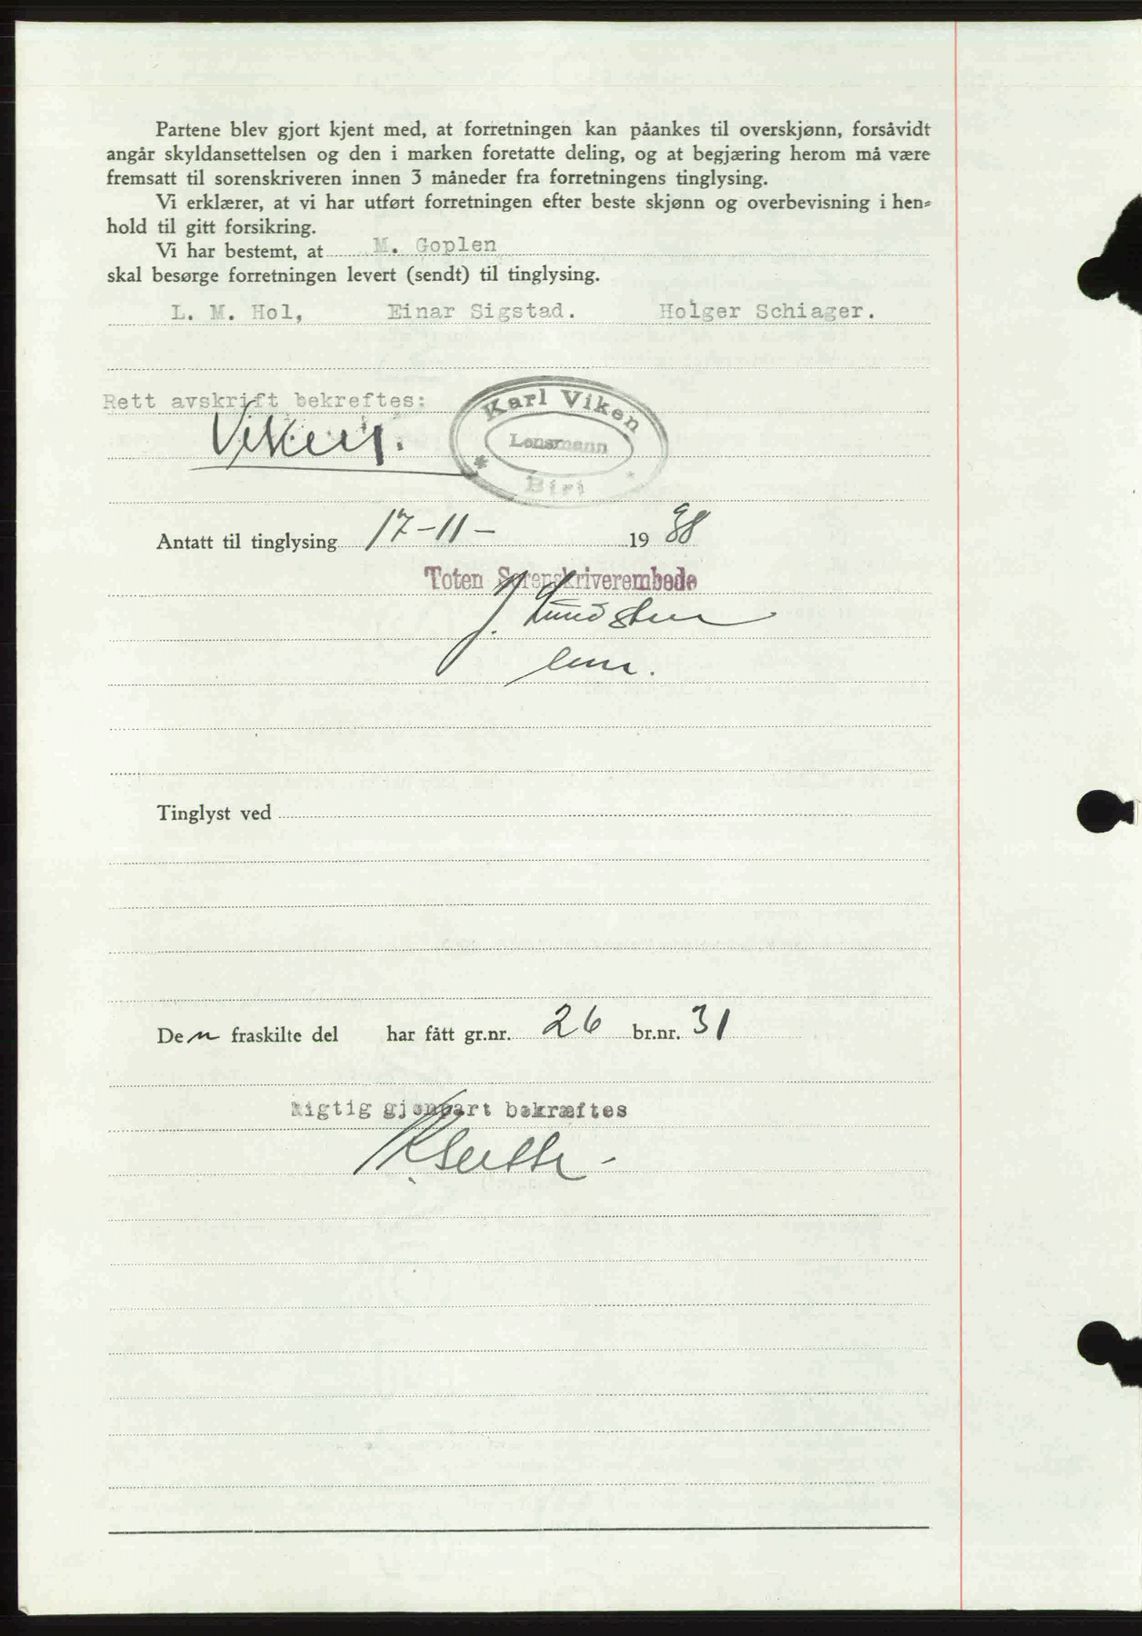 Partene blev gjort kjent med, at forretningen kan påankes til overskjønn, forsåvidt
angår skyldansettelsen og den i marken foretatte deling, og at begjæring herom må være
fremsatt til sorenskriveren innen 3 måneder fra forretningens tinglysing.
Vi erklærer, at vi har utført forretningen efter beste skjønn og overbevisning i hen-
hold til gitt forsikring.
Vi har bestemt, at M. Goplen
skal besørge forretningen levert (sendt) til tinglysing.
L. M. Hol, Einar Sigstad. Holger Schiager.
Rett avskrift bekreftes:
Viken.
Karl Viken
Lensmann
* Biri *
Antatt til tinglysing 17-11- 1938
Toten Sorenskriverembede
Tinglyst ved
Den fraskilte del har fått gr.nr. 26 br.nr. 31
Rigtig gjenpart bekræftes